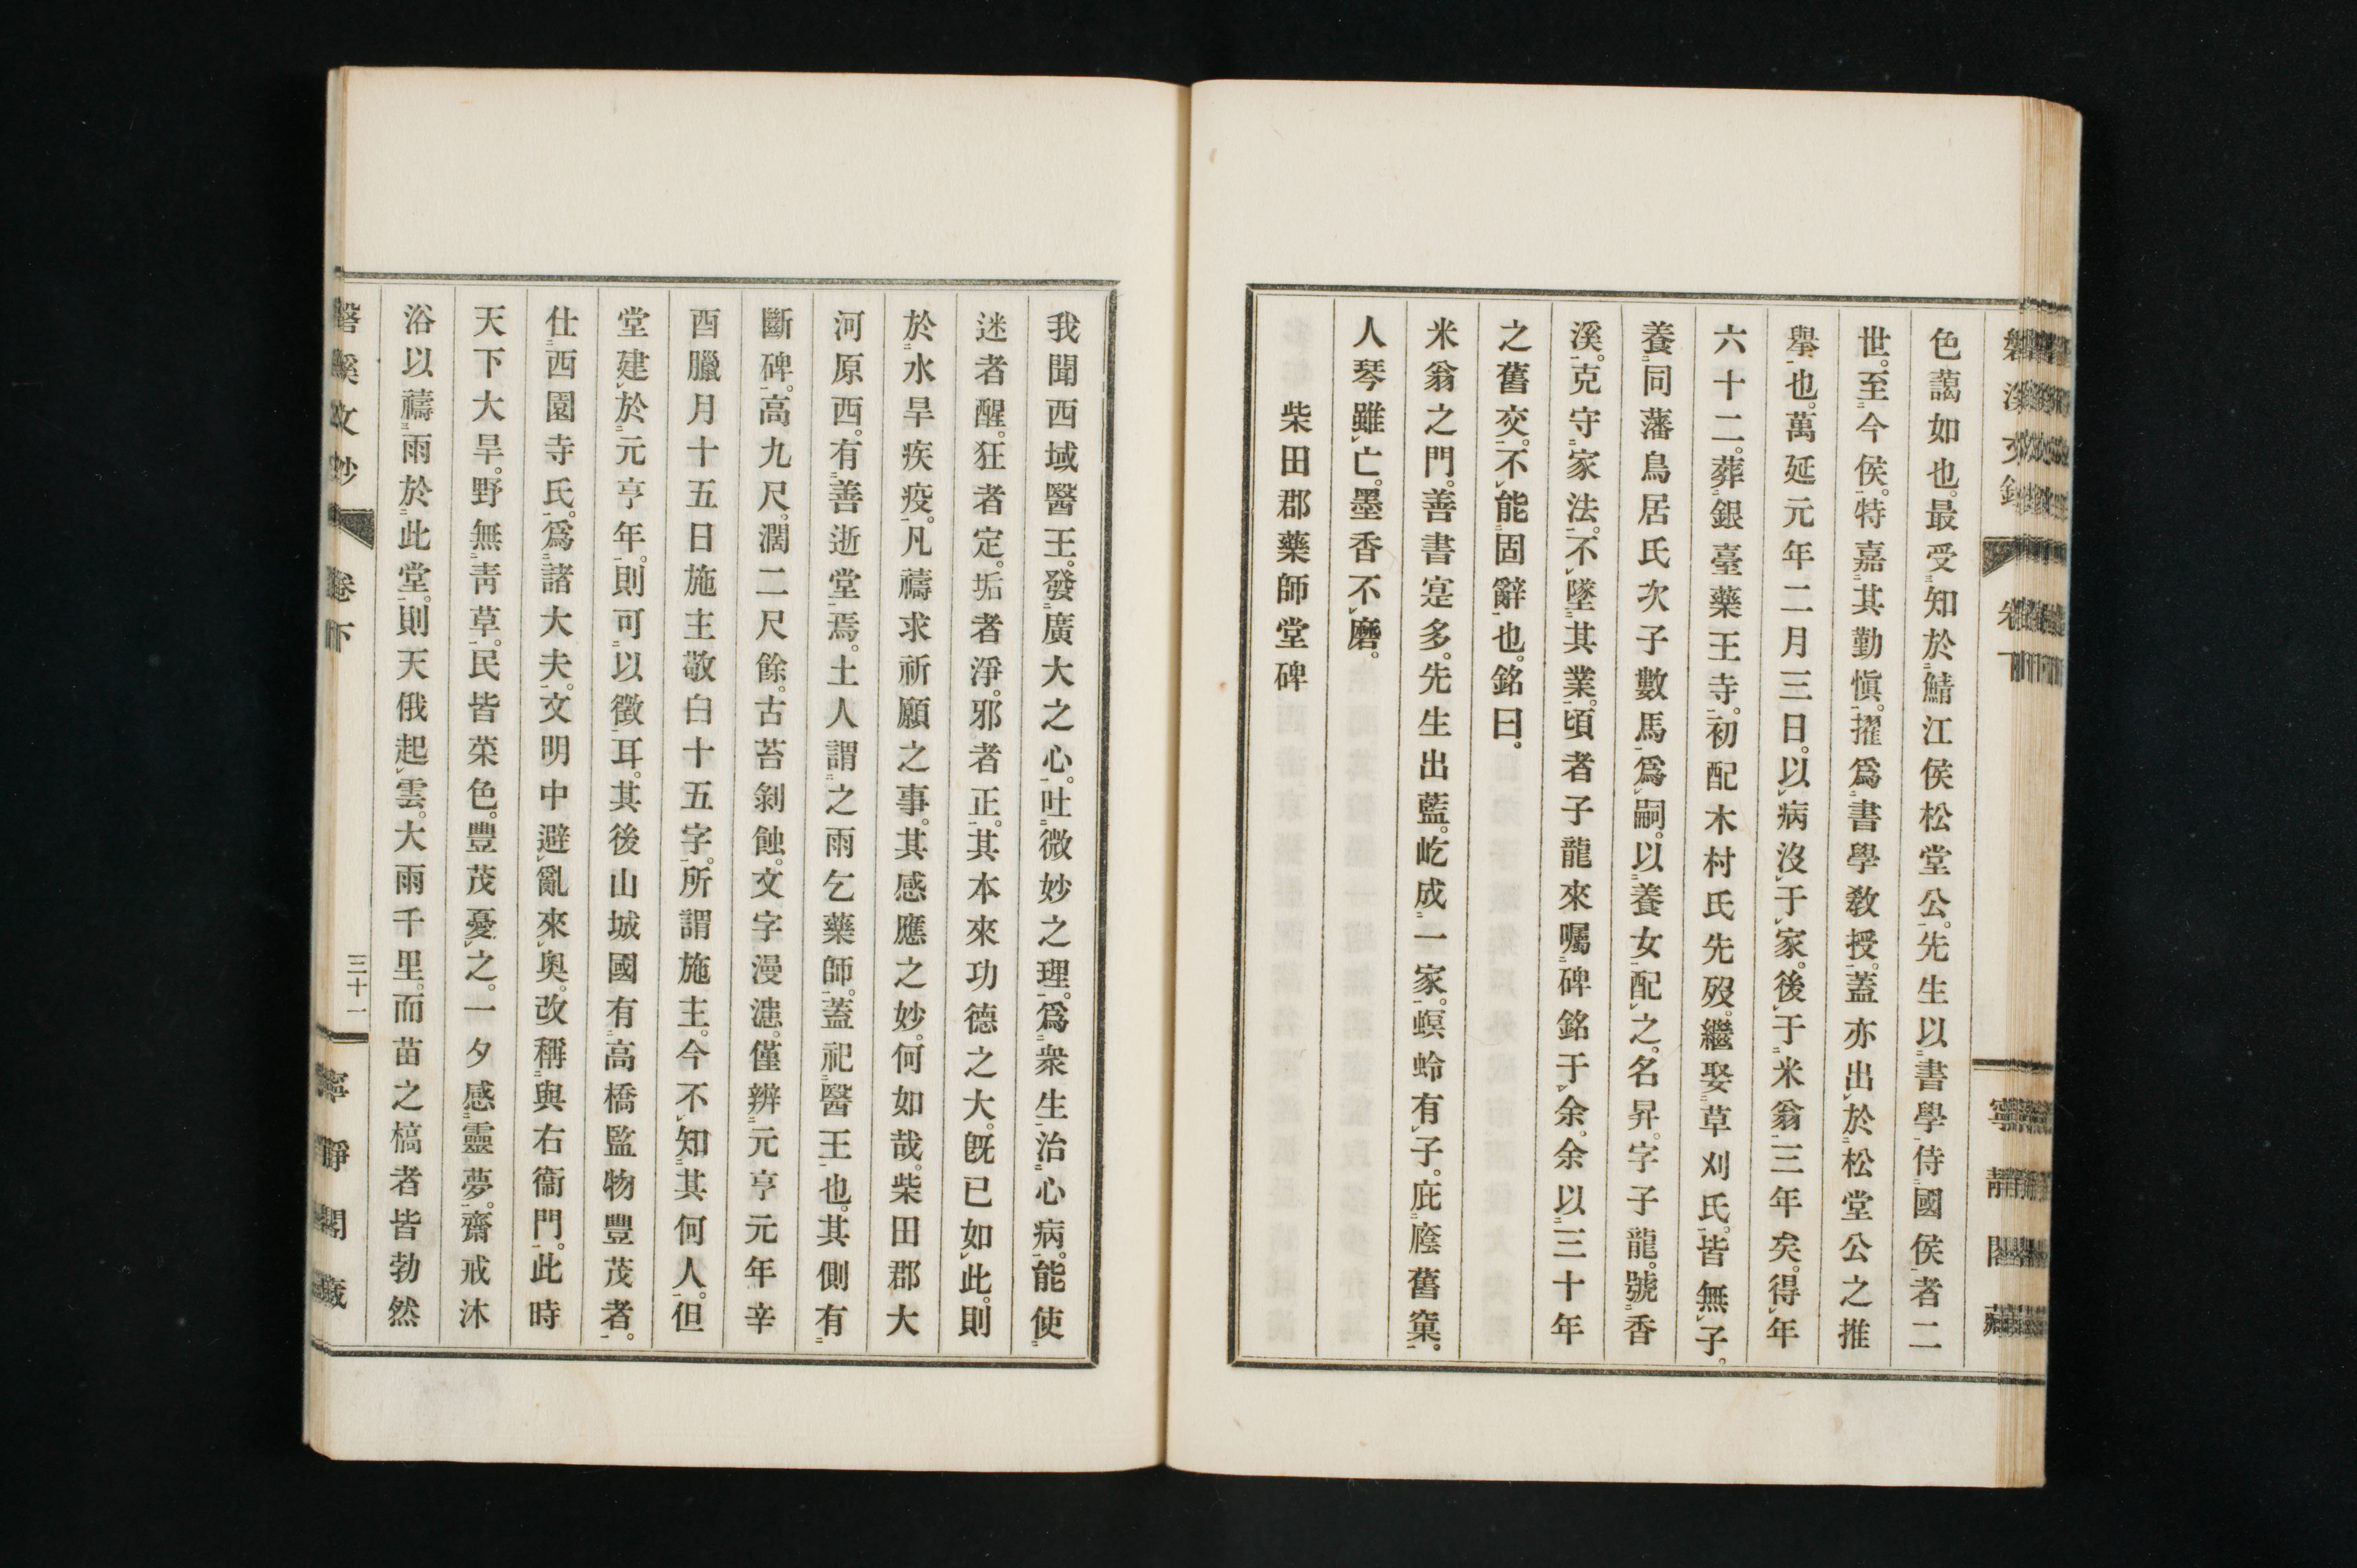 色藹如也。最受知於鯖江侯松堂公。先生以書學侍國侯者二
世。至今侯。特嘉其勤愼。擢爲書學敎授。蓋亦出於松堂公之推
擧也。萬延元年二月三日。以病沒于家。後于米翁三年矣。得年
六十二。葬銀臺藥王寺。初配木村氏先歿。繼娶草刈氏。皆無子。
養同藩鳥居氏次子數馬爲嗣。以養女配之。名昇。字子龍。號香
溪。克守家法。不墜其業。頃者子龍來囑碑銘于余。余以三十年
之舊交。不能固辭也。銘曰。
米翁之門。善書寔多。先生出藍。屹成一家。螟蛉有子。庇廕舊窠。
人琴雖亡。墨香不磨。
柴田郡藥師堂碑
我聞西域醫王。發廣大之心。吐微妙之理。爲衆生治心病。能使
迷者醒。狂者定。垢者淨。邪者正。其本來功德之大。旣已如此。則
於水旱疾疫。凡禱求祈願之事。其感應之妙。何如哉。柴田郡大
河原西。有善逝堂焉。土人謂之雨乞藥師。蓋祀醫王也。其側有
斷碑。高九尺。濶二尺餘。古苔剝蝕。文字漫漶。僅辨元亨元年辛
酉臘月十五日施主敬白十五字。所謂施主。今不知其何人。但
堂建於元亨年。則可以徵耳。其後山城國有高橋監物豐茂者。
仕西園寺氏。爲諸大夫。文明中避亂來奥。改稱與右衞門。此時
天下大旱。野無靑草。民皆菜色。豐茂憂之。一夕感靈夢。齋戒沐
浴以禱雨於此堂。則天俄起雲。大雨千里。而苗之槁者皆勃然
磐溪文鈔 卷下 三十一 寧靜閣藏